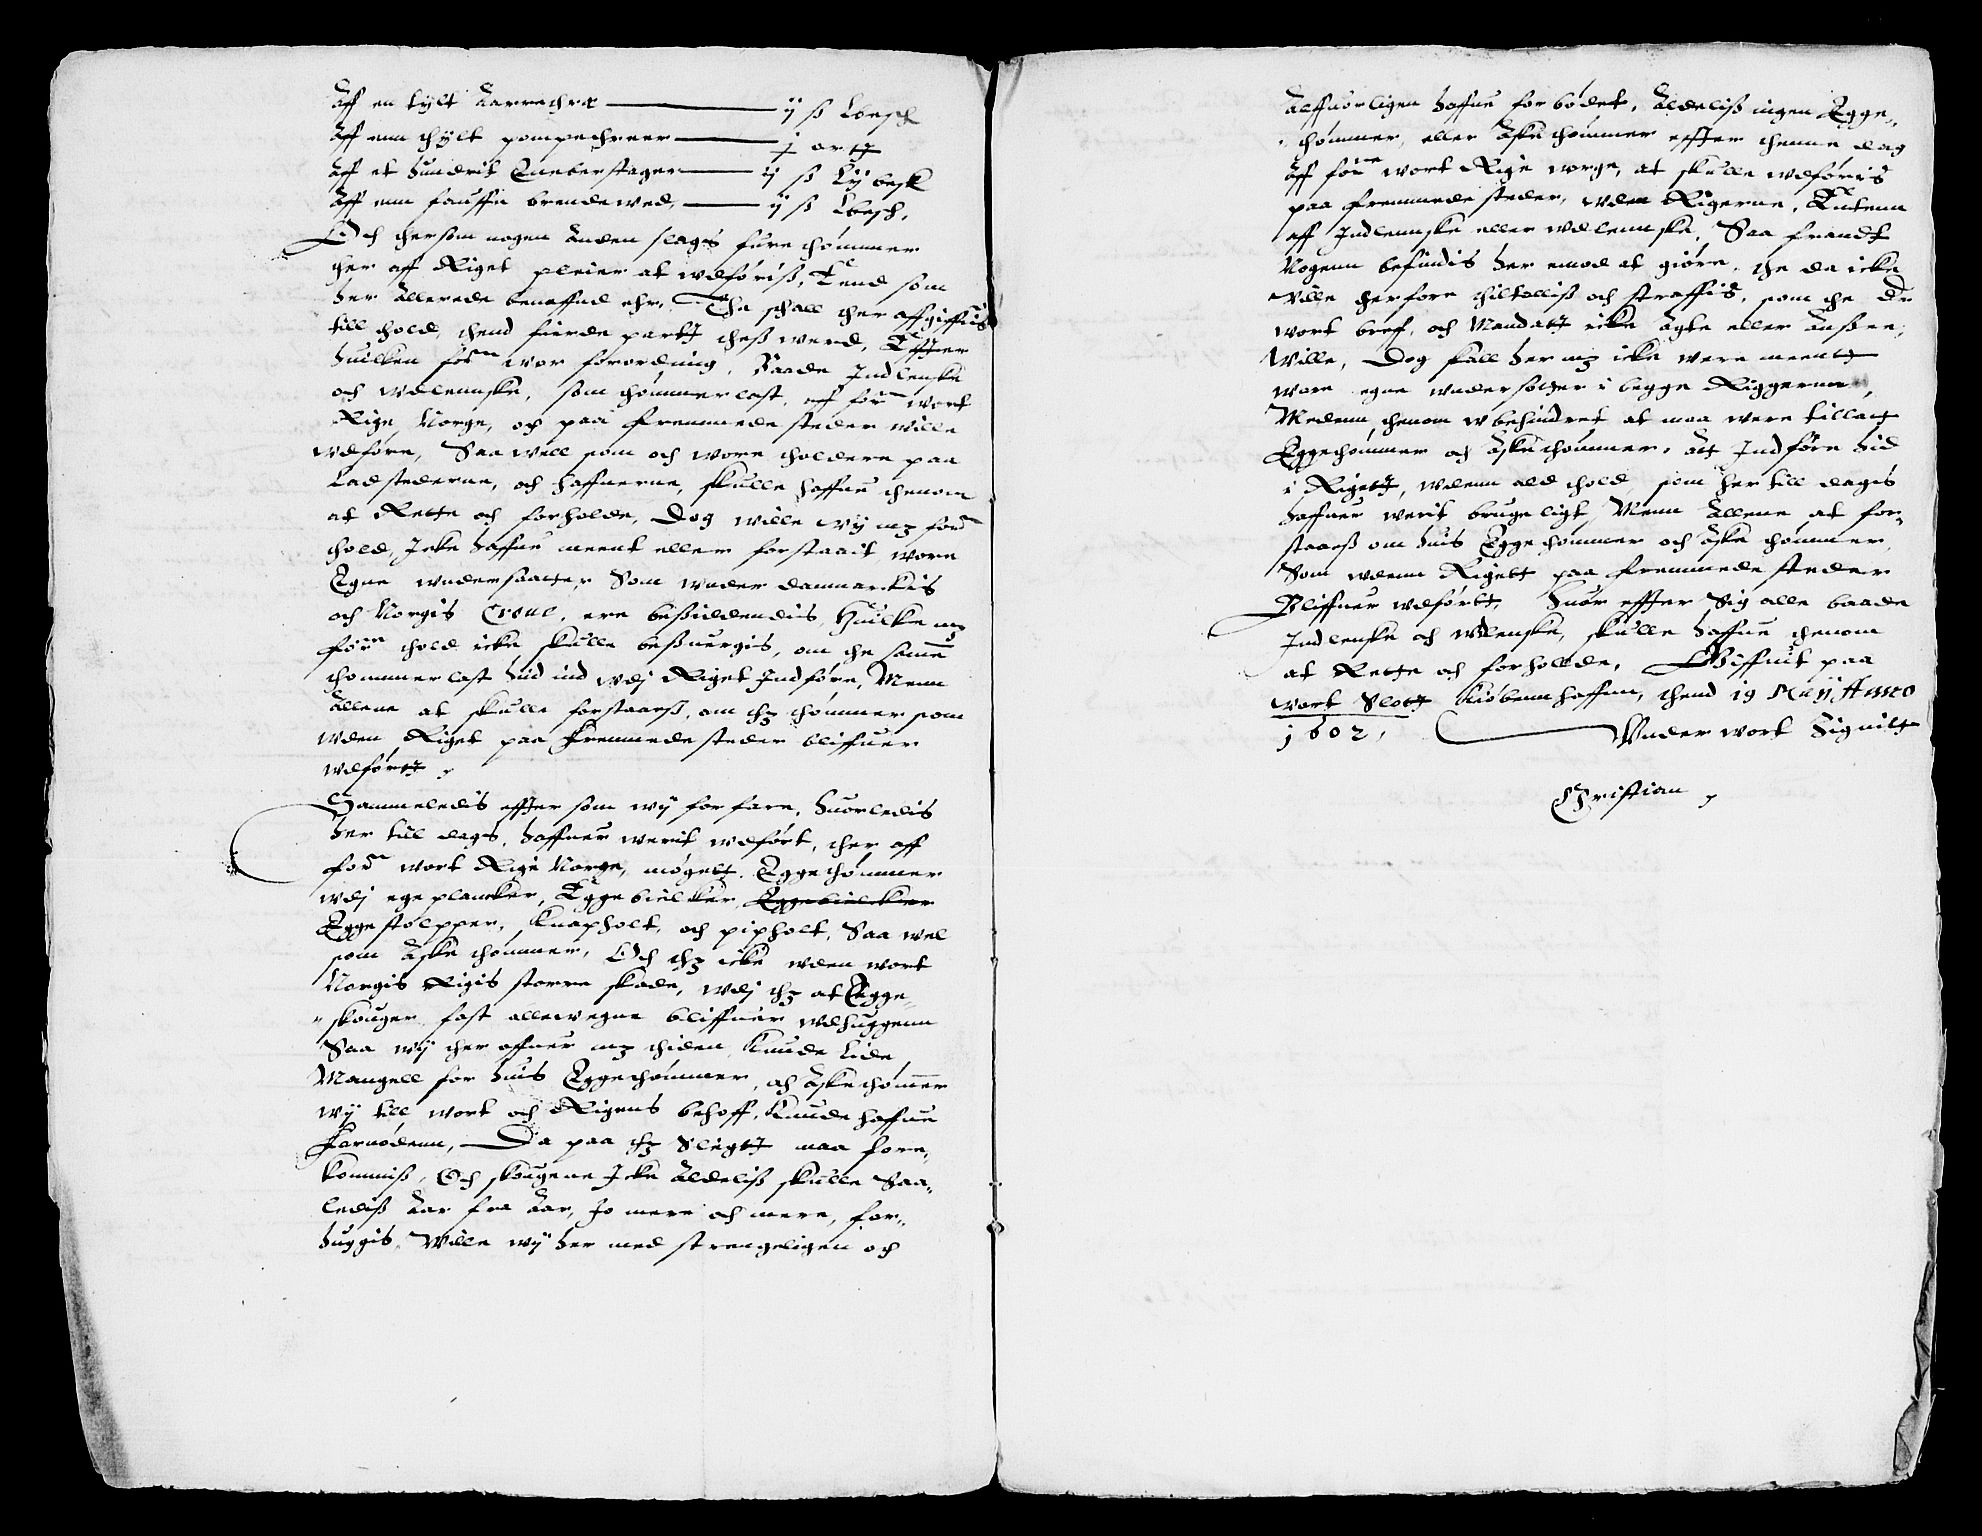 Aff en tylt Aarrethræ ——— ij ß Lbesch
Aff enn thÿlt pompethreer ——— j ortt
Aff et hundrit Eneberstager ——— ij ß Lÿbesk
Aff enn fauffn brendewed, ——— ij ß Lbesch,
Och thersom nogen Anden slags fure thømmer
ther aff Riget pleier at wdføriß, End som
her Allerede beneffnd ehr, Tha schall ther affgiffuis
till thold, thend fierde partt theß werd, Effter
huilken forne wor forordning, Baade Indlenske
och wdlennske, som thømmerlast, aff forne wort
Rige Norge, och paa fremmede steder wille
wdføre, Saa well som och wore tholdere paa
Ladstederne, och haffnerne, skulle haffue thenom
at Rette och forholde, Dog wille wÿ mz forne
thold, Icke haffue meent eller forstaait wore
Egne wndersaatter Som wnder danmarckis
och Norgis Crone, ere beßiddendis, Huilke mz
forne thold icke skulle beßuergis, om the samme
thømmerlast hid ind wdj Riget Indføre, Menn
Allene at skulle forstaaeß, om thz thømmer som
wden Riget paa Fremmede steder bliffuer
wdførtt,
Sammeledis effter som wÿ forfare, huorledis
her till dags, haffuer werit wdført, ther aff
forne wort Rige Norge, møgett Eggethømmer
wdj egeplancker, Eggebielcker, Eggebielcker
Eggestolpper, Knapholt, och pipholt, Saa wel
som Aske thømmer, Och thz icke wden wort
Norgis Rigis storre skade, wdj thz at Egge-
skouger fast allewegne bliffuer wdhuggenn
Saa wÿ ther offuer mz thiden kunde lide
Mangell for huis Eggethømmer, och Askethømmer
wÿ till wort och Rigens behoff, kunde haffue
Fornødenn, Da paa thz Sligtt maa fore-
kommiß, Och skougene Icke Aldeliß skulle Saa-
lediß Aar fra Aar, Jo mere och mere, for-
huggis, Wille wÿ her med strengeligen och
Alffuorligen haffue forbødet, Aldeliß ingen Egge-
thømmer, eller Aske thømmer effter thenne dag
Aff forne wort Rige norge, at skulle wdføris
paa fremmede steder, wden Rigerne, Enten
aff Indlennske eller wdlennske, Saa frandt
Nogenn befindis her emod at giøre, the da icke
wille therfore thiltalliß och straffis, som the der
wort breff, och Mandatt icke Agte eller Anßee,
Wille, Dog skall her mz icke were meentt
wore egne wndersotter i begge Riggerne,
Medenn thenom wbehindret at maa were tilladt
Eggethømmer och Askethømmer, att Indføre hid
i Rigett, wdenn ald thold som her till dagis
haffuer werit brugeligt, Menn Allene at for-
staaeß om huis Eggethømmer och Aske thømmer,
Som wdenn Rigett paa fremmede steder
Bliffuer wdførtt, Huor effter Sig alle baade
Indlenske och wdlenske, skulle haffue thenom
at Rette och forhollde, Giffuit paa
wort Slott Kiøbennhaffnn, thend 19 Maij Anno
1602, Wnder wort Signitt
Christian,